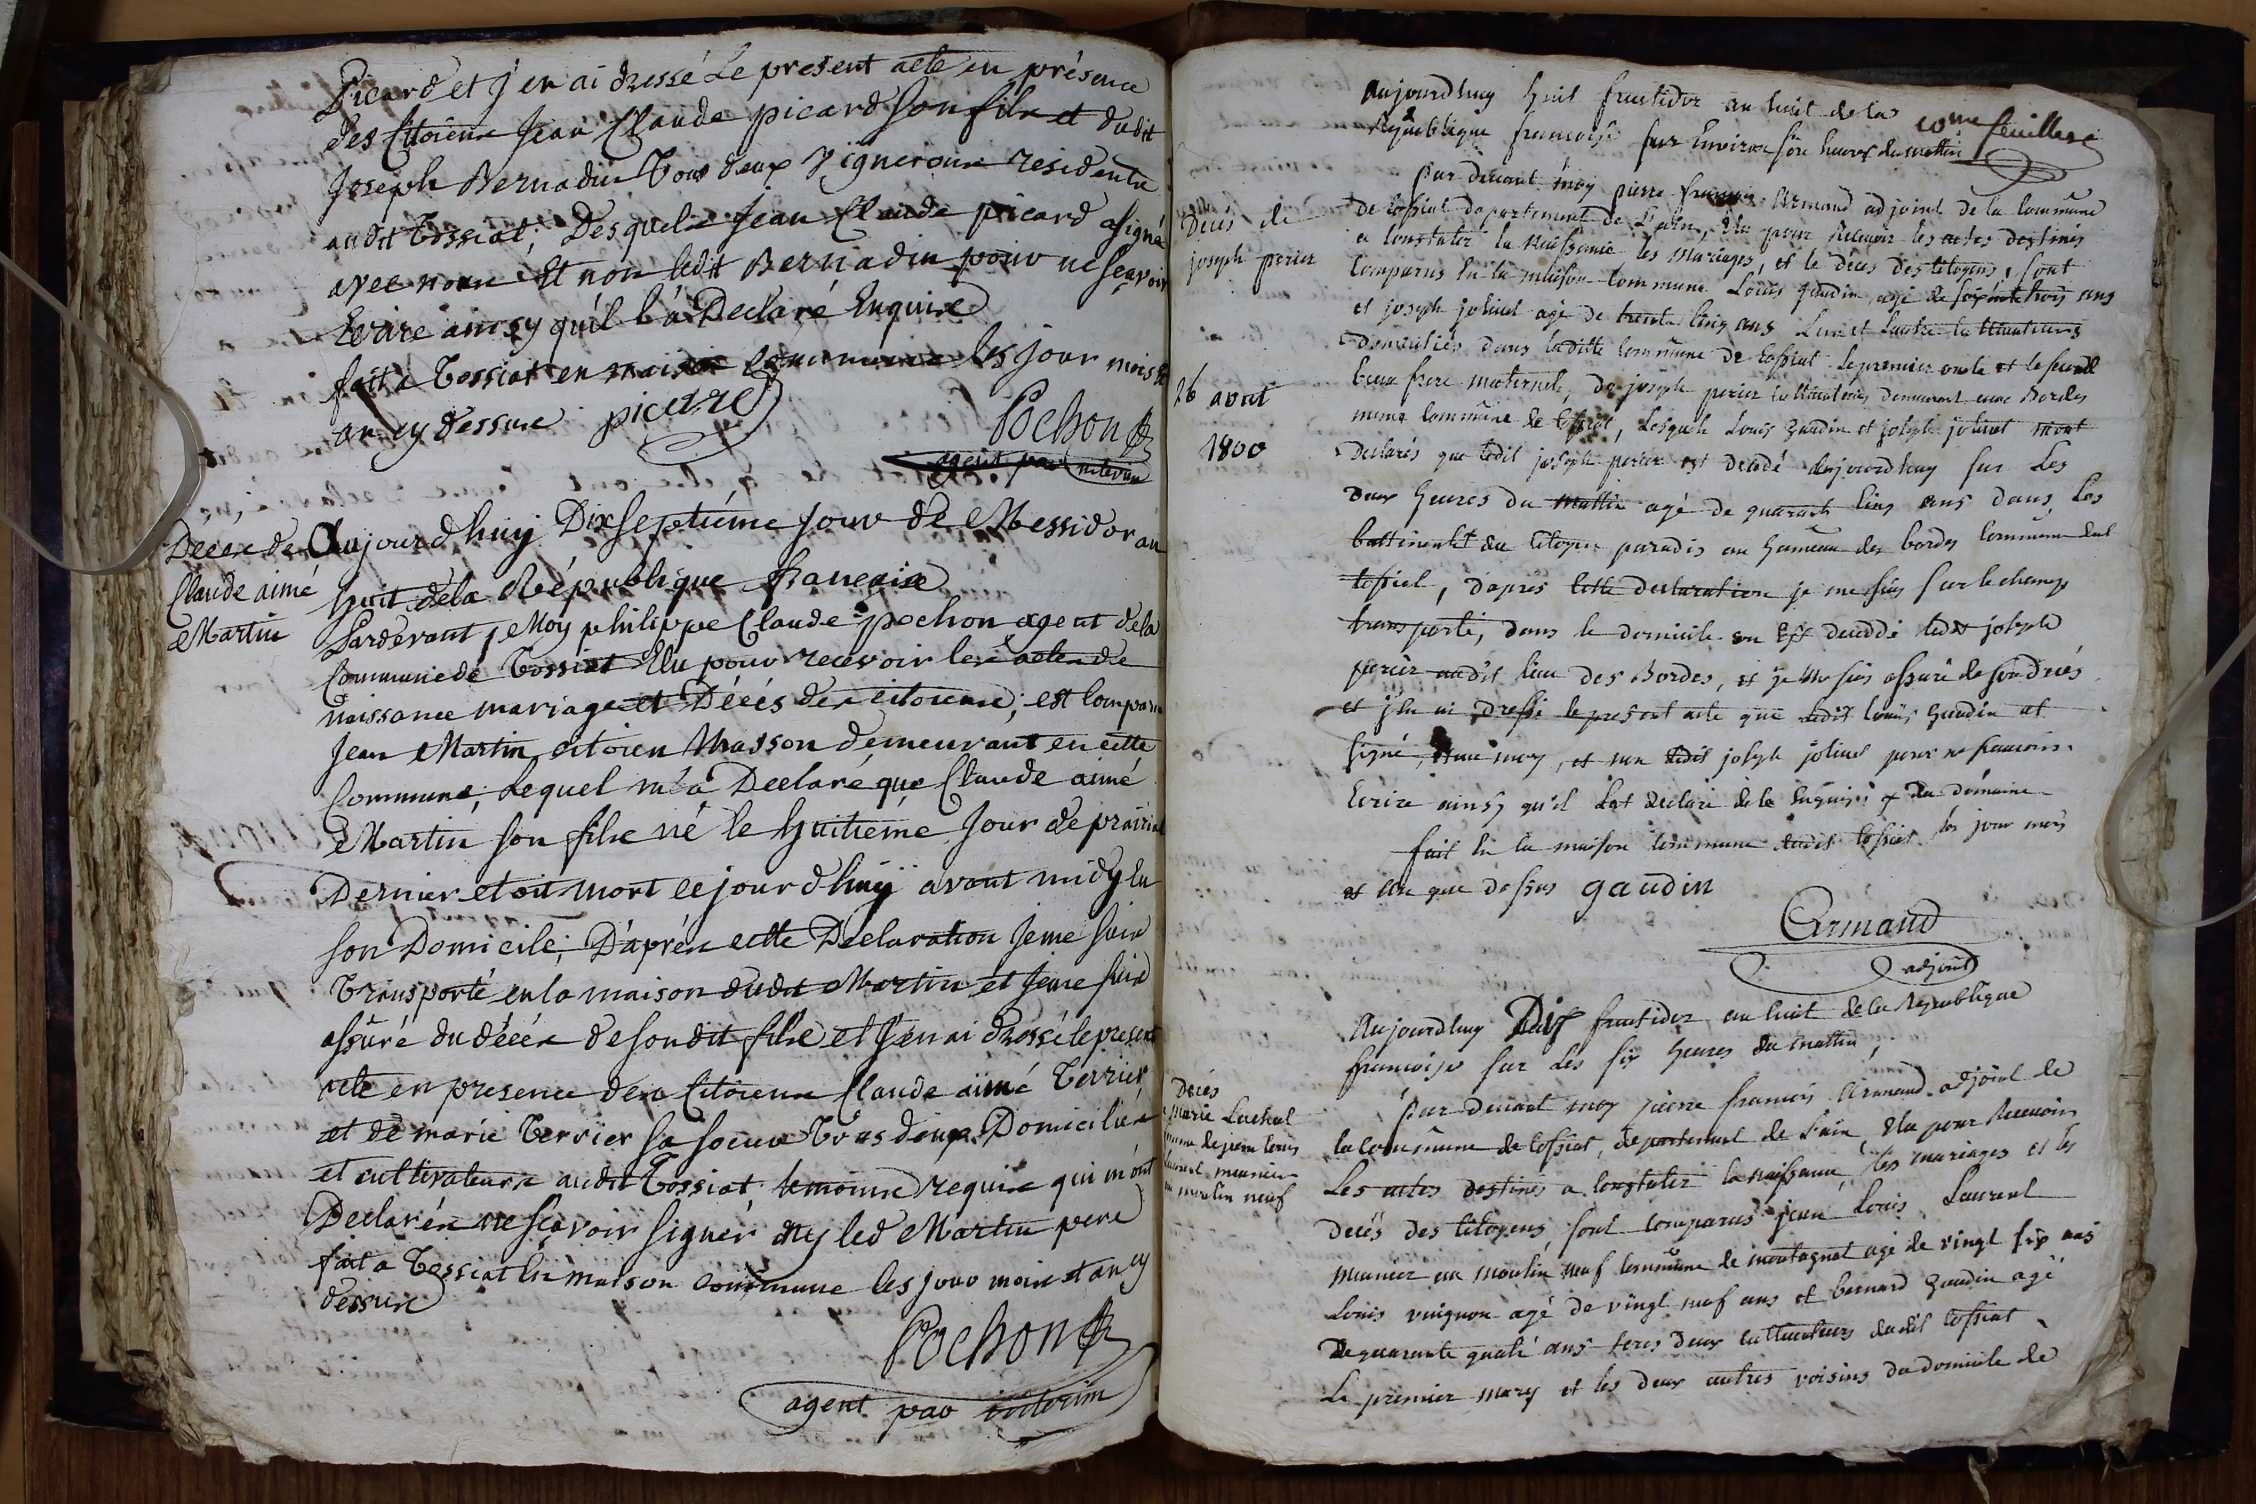 Picard et j'en ai dressé le present acte en présence
des Citoiens Jean Claude picard son fils et dudit
Joseph Bernadin Tous deux Vignerons residents
audit Tossiat; Desquels Jean Claude picard a signé
avec nous Et non ledit Bernadin pour ne sçavoir
Ecrire ainsy qu'il l'a Declaré Enquis
fait a Tossiat en maison commune les jour mois &
an cy dessus picard
Pochon
agent par interim
Décès de
Claude aimé
Martin
Aujourdhuy Dix septiéme jour de Messidor an
huit dela République francaise
Pardevant Moy philippe Claude pochon agent dela
Commune de Tossiat Elu pour recevoir les actes de
naissance mariage et Décés des citoiens; est comparu
Jean Martin citoien Masson demeurant en cette
Commune, Lequel m'a Declaré que Claude aimé
Martin son fils né le huitiéme Jour de prairial
Dernier etoit mort ce jourdhuÿ avant midy en
son Domicile; D'aprés cette Déclaration Je me suis
Transporté en la maison dudit Martin et Je me suis
assuré du décés de son dit fils et J'en ai dressé le present
acte en presence des Citoiens Claude aimé Terrier
et de marie Terrier sa soeur Tous deux Domiciliés
et cultivateurs audit Tossiat temoins requis qui m'ont
Declarés ne sçavoir signér ny led Martin pere
fait a Tossiat En maison commune les jour mois et an cy
dessus
Pochon
agent par interim
10me feuillet
aujourdhuy huit fructidor an huit de la
Republique francoise sur Environ six heures du mattin
Décès de
joseph perier
26 aout
1800
par devant moy pierre francois Armand adjoint de la commune
de tossiat departement de L'ain, Elu pour Recevoir les actes destinés
a Constater la Naissance les Mariages, et le déces des Citoyens, sont
Comparus En la maison Commune Louis gaudin, agé de soixante trois ans
et joseph joliuet agé de trente Cinq ans Lun et Lautre Cultivateurs
domiciliés dans laditte Commune de tossiat Le premier oncle et le second
beau frere maternels, de joseph perier Cultivateur demeurant aux Bordes
meme Commune de tossiat, Lesquels Louis gaudin et joseph joliuet mont
Declarés que ledit joseph perier est decedé aujourdhuy sur Les
deux heures du mattin agé de quarante Cinq ans dans, Les
battiments du Citoyen paradis au hameau des bordes Commune dud
tossiat, dapres Cette declaration je me suis sur le champ
transporté, dans le domicile ou Est decedé ledit joseph
perier audit lieu des Bordes, et je Me suis assuré de son deces
et j'En ai dressé le present acte que ledit Louis Gaudin at
signé, avec moy, et non ledit joseph joliuet pour ne scauoir
Ecrire ainsy qu'il L'at declaré de ce Enquis;
fait En la maison Commune dudit tossiat les jour mois
et an que dessus gaudin
Armand
adjoint
Décès
Marie Luchal
femme de jean Louis
Laurent meunier
au moulin neuf
Aujourdhuy Dix fructidor an huit de la Republique
francoise sur Les six heures du mattin,
par devant moy pierre francois Armand adjoint de
la Commune de tossiat, departement de Lain, Elu pour Recevoir
Les actes destinés a Constater la naissance, les mariages et les
decés des Citoyens sont Comparus jean Louis Laurent
meunier au moulin neuf Commune de montagnat agé de vingt six ans
Louis vuignon agé de vingt neuf ans et bernard gaudin agé
de quarante quatre ans Ces deux cultivateurs dudit tossiat
Le premier mary et les deux autres voisins du domicile de